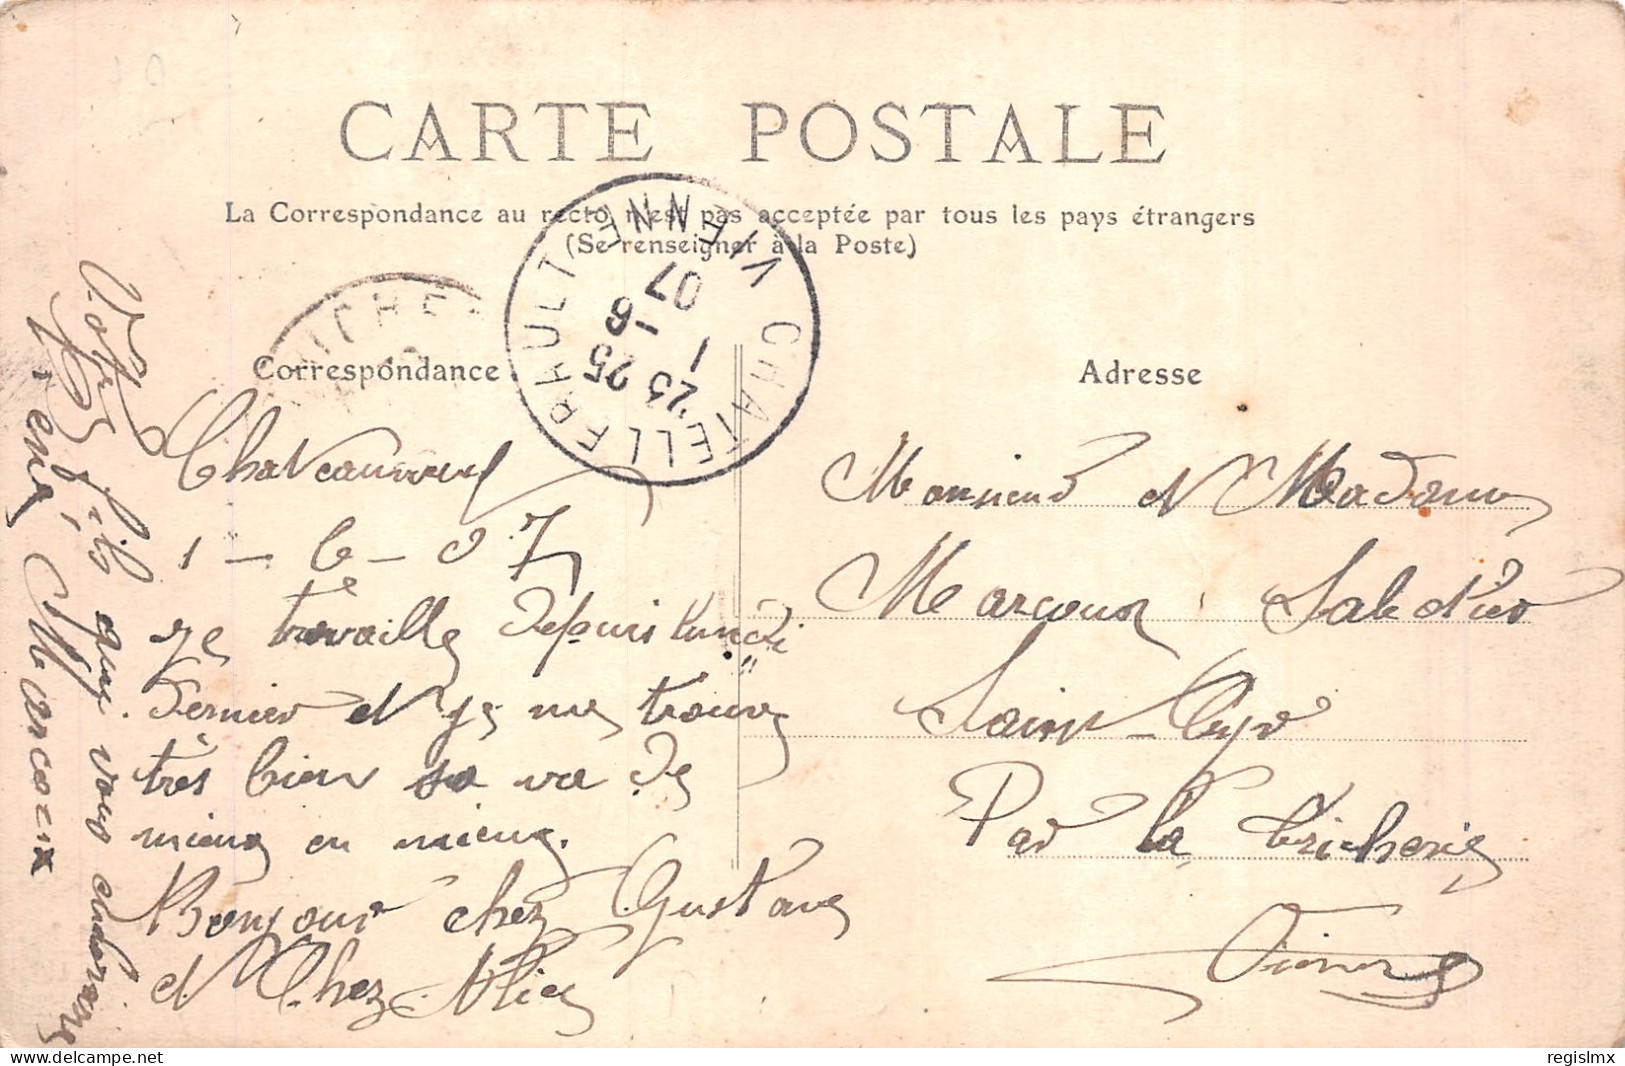 CARTE POSTALE
La Correspondance au recto n'est pas acceptée par tous les pays étrangers
(Se renseigner à la Poste)
CHATELLERAULT VIENNE
23 25
1 -6
07
Correspondance
Adresse
1 - 6 - 07
je travaille depuis lundi
dernier et je me trouve
très bien sa va de
mieux en mieux.
Bonjour chez Gustave
et Chez Alice
Votre fils que vous adore
René Marcoux
Monsieur et Madame
Marcoux
Saint-Cyr
Par la tricherie
Vienne
regislmx
delcampe.net